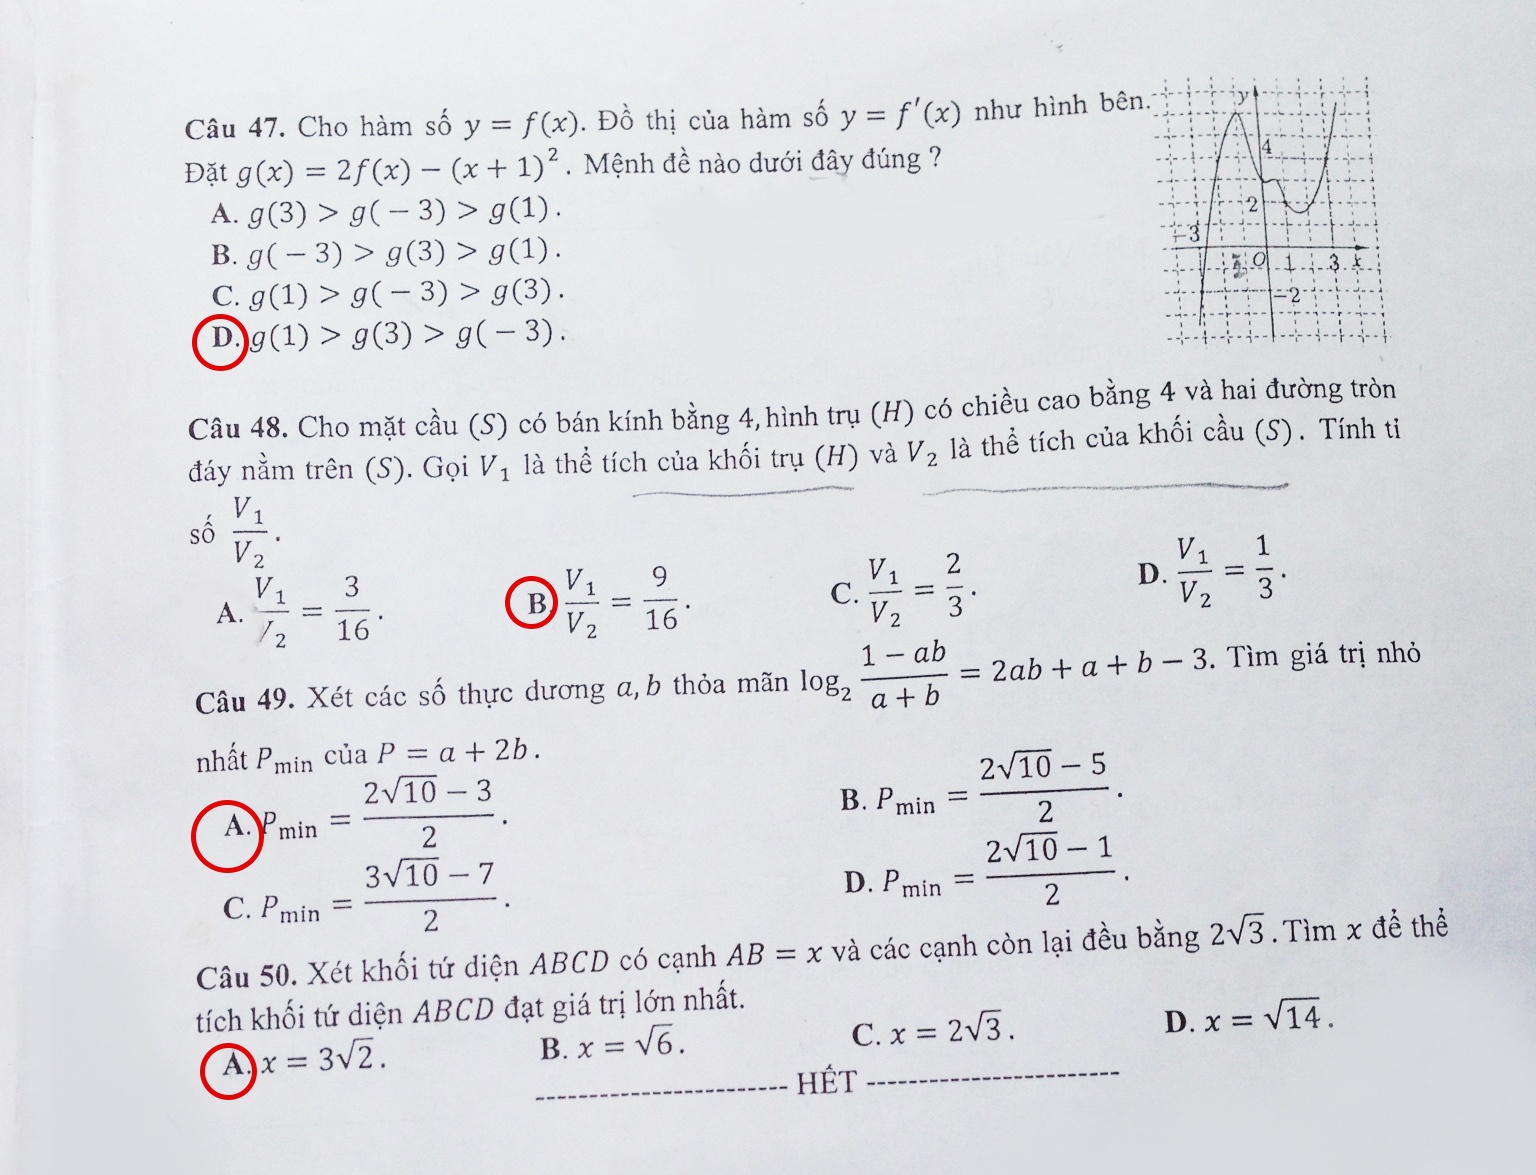 Câu 47. Cho hàm số y = f(x). Đồ thị của hàm số y = f′(x) như hình bên.
Đặt g(x) = 2f(x) − (x + 1)². Mệnh đề nào dưới đây đúng ?
A. g(3) > g(− 3) > g(1).
B. g(− 3) > g(3) > g(1).
C. g(1) > g(− 3) > g(3).
D. g(1) > g(3) > g(− 3).
y
4
2
−3
O 1 3 x
−2
Câu 48. Cho mặt cầu (S) có bán kính bằng 4, hình trụ (H) có chiều cao bằng 4 và hai đường tròn
đáy nằm trên (S). Gọi V₁ là thể tích của khối trụ (H) và V₂ là thể tích của khối cầu (S). Tính tỉ
số V₁/V₂.
A. V₁/V₂ = 3/16. B. V₁/V₂ = 9/16. C. V₁/V₂ = 2/3. D. V₁/V₂ = 1/3.
Câu 49. Xét các số thực dương a, b thỏa mãn log₂ (1 − ab)/(a + b) = 2ab + a + b − 3. Tìm giá trị nhỏ
nhất Pmin của P = a + 2b.
A. Pmin = (2√10 − 3)/2. B. Pmin = (2√10 − 5)/2.
C. Pmin = (3√10 − 7)/2. D. Pmin = (2√10 − 1)/2.
Câu 50. Xét khối tứ diện ABCD có cạnh AB = x và các cạnh còn lại đều bằng 2√3. Tìm x để thể
tích khối tứ diện ABCD đạt giá trị lớn nhất.
A. x = 3√2. B. x = √6. C. x = 2√3. D. x = √14.
------------------------ HẾT ------------------------